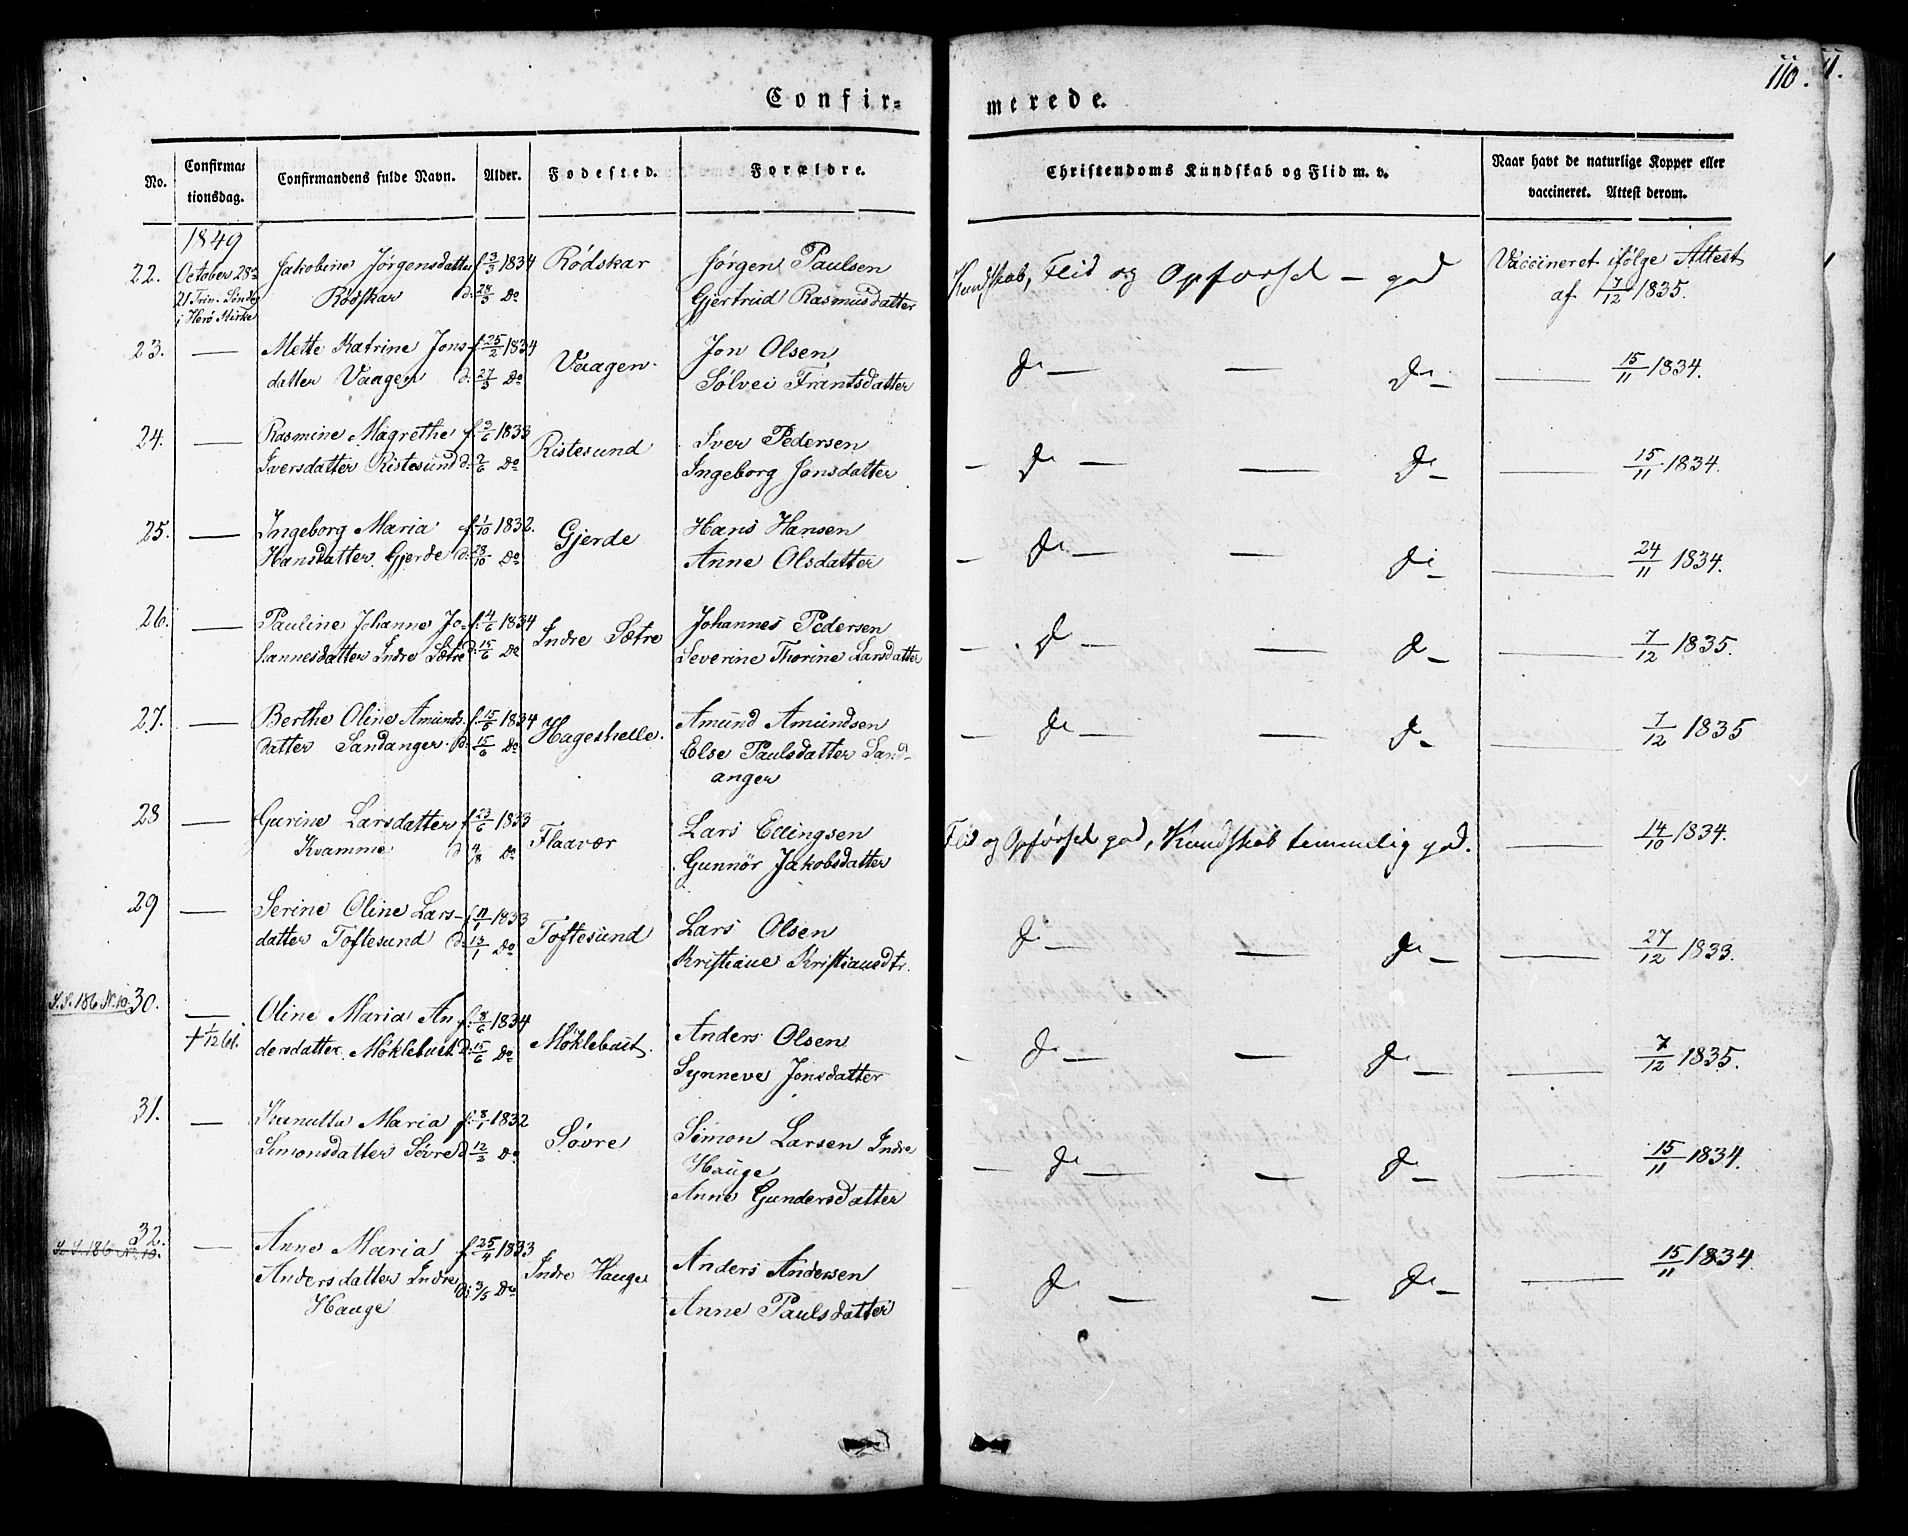 110.
Confir= merede.
No. Confirma= tionsdag. Confirmandens fulde Navn. Alder. Fødested. Forældre. Christendoms Kundskab og Flid m. v. Naar havt de naturlige Kopper eller vaccineret. Attest derom.
1849
22. October 28de Jakobine Jörgensdatter f. 3/3 1834 Rödskar Jörgen Paulsen Kundskab, Flid og Opførsel – god Vaccineret ifölge Attest
21. Trin. Sönd. Rödskar d: 28/3 Do Gjertrud Rasmusdatter af 7/12 1835.
i Herö Kirke
23. — Mette Katrine Jons- f. 25/2 1834 Vaagen Jon Olsen Do — — Do — — 15/11 1834.
datter Vaagen d: 27/3 Do Sölvei Frantsdatter
24. — Rasmine Magrethe f. 3/6 1833 Ristesund Iver Pedersen — Do — — Do — — 15/11 1834.
Iversdatter Ristesund d: 9/6 Do Ingeborg Jonsdatter
25. — Ingeborg Maria f. 1/10 1832. Gjerde Hans Hansen — Do — — Do — — 24/11 1834.
Hansdatter Gjerde d: 28/10 Do Anne Olsdatter
26. — Pauline Johanne Jo- f. 4/6 1834 Indre Sætre Johannes Pedersen — Do — — Do — — 7/12 1835.
hannesdatter Indre Sætre d. 15/6 Do Severine Thorine Larsdatter
27. — Berthe Oline Amunds- f. 15/5 1834 Hageshelle. Amund Amundsen — Do — — Do — — 7/12 1835
datter Sandanger d: 15/6 Do Else Paulsdatter Sand-
anger
28 — Gurine Larsdatter f. 23/6 1833 Flaavær Lars Ellingsen Flid og Opførsel god, Kundskab temmelig god. — 14/10 1834.
Kvamme d 4/8 Do Gunnör Jakobsdatter
29 — Serine Oline Lars- f. 11/1 1833 Toftesund Lars Olsen Do — — Do — — 27/12 1833.
datter Toftesund d: 13/1 Do Kristiane Kristiansdtr.
S.S. 186 Nr. 10. 30. — Oline Maria An- f. 8/6 1834 Möklebust. Anders Olsen — Do — — Do — — 7/12 1835.
dersdatter Möklebust d: 15/6 Do Synneve Jonsdatter
31. — Kunutta Maria f. 8/1 1832 Sövre Simon Larsen Indre — Do — — Do — — 15/11 1834.
Simonsdatter Sövre d 12/2 Do Hauge
Anne Gundersdatter
32. — Anne Maria f. 25/4 1833 Indre Hauge Anders Andersen — Do — — Do — — 15/11 1834.
S.S. 186 Nr. 10. Andersdatter Indre d: 3/5 Do Anne Paulsdatter
Hauge